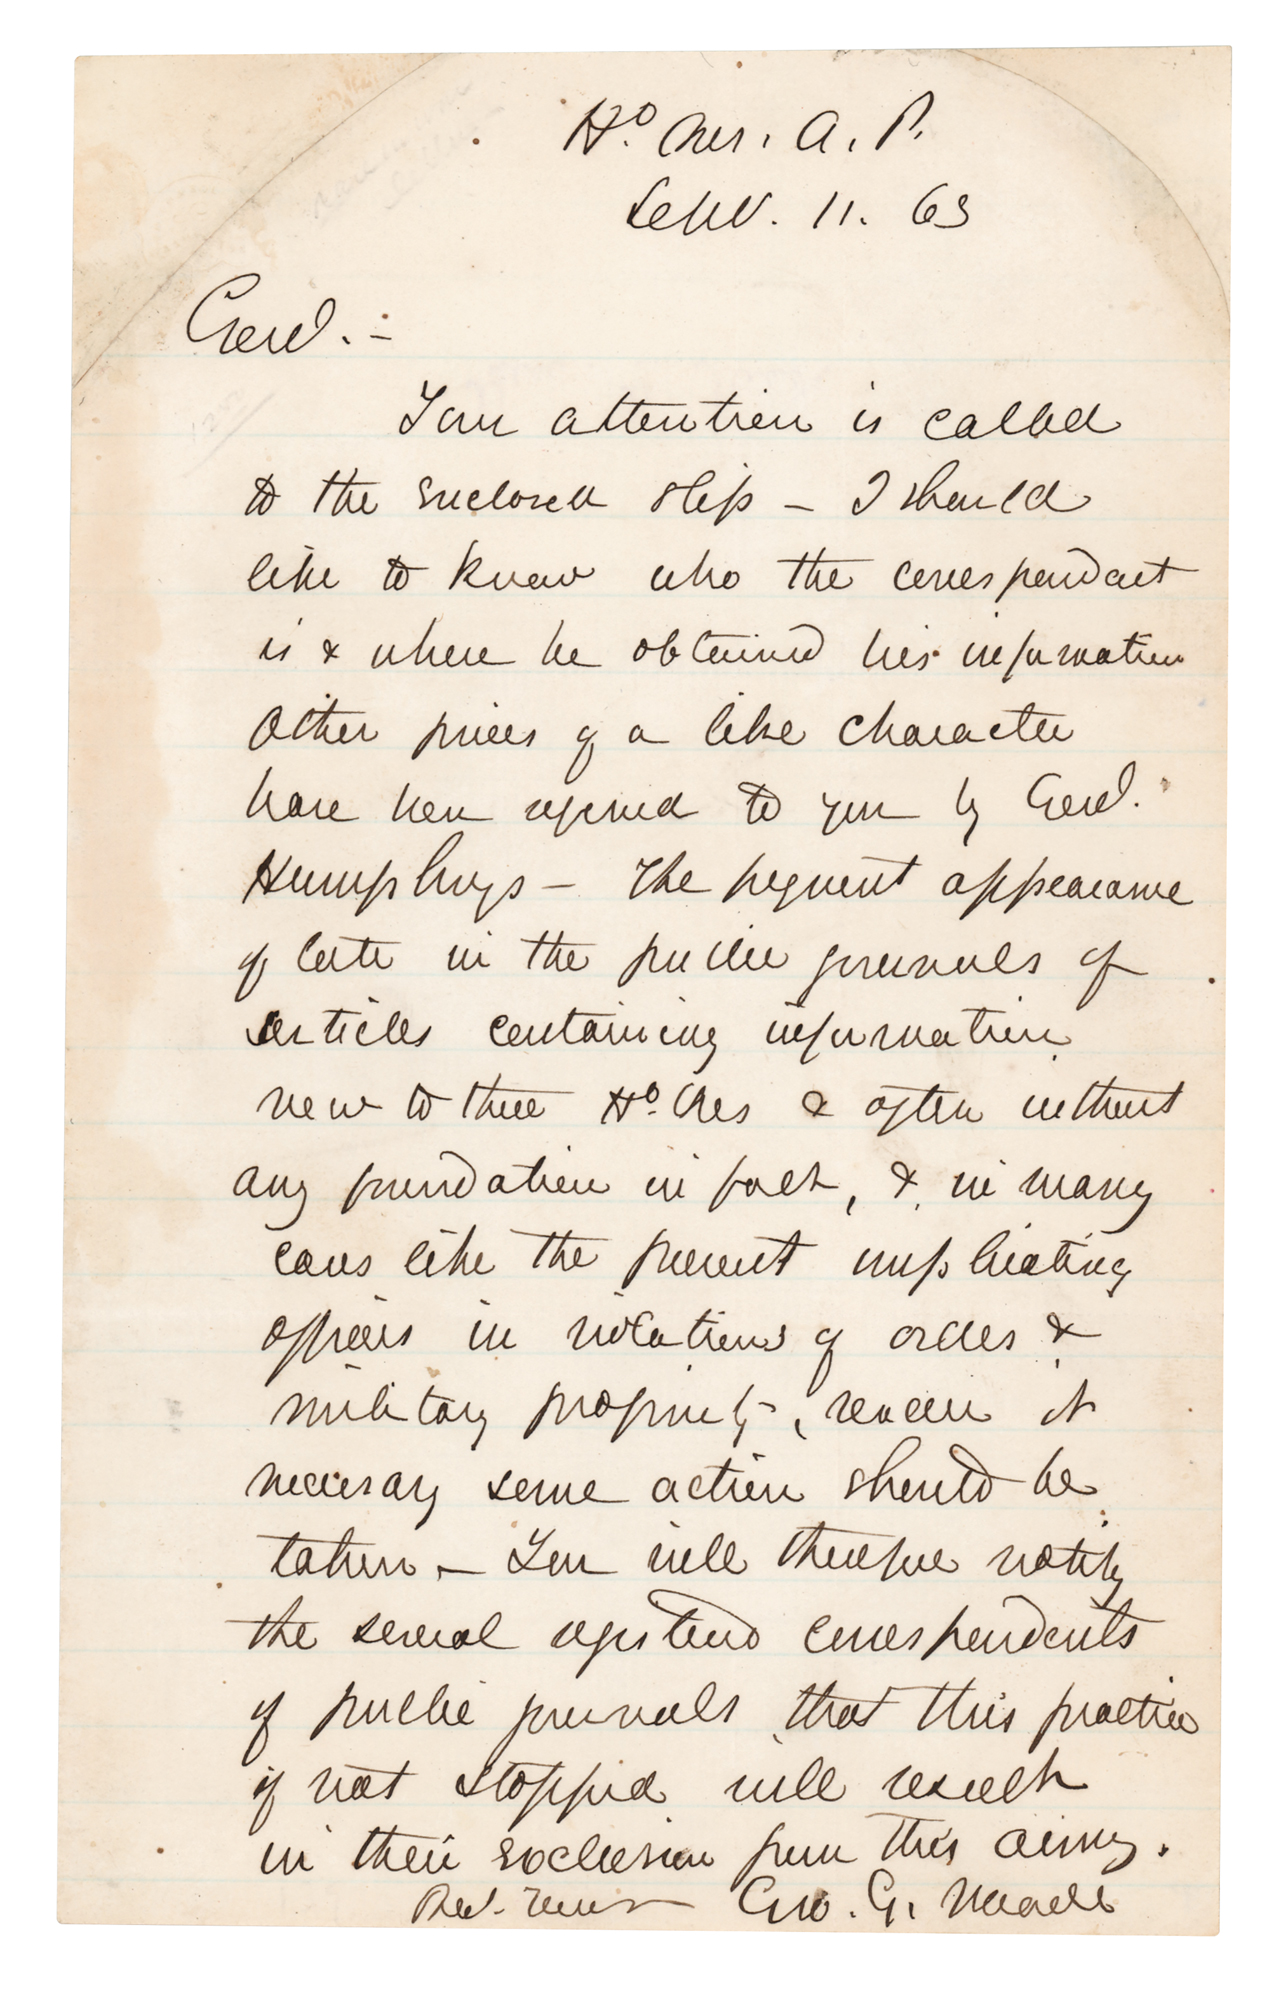 Hd. Qrs. A. P.
Sept. 11. 63
Genl. -
Your attention is called
to the enclosed slip - I should
like to know who the correspondent
is & where he obtained his information
Other pieces of a like character
have been referred to you by Genl.
Humphreys - The frequent appearance
of late in the public journals of
articles containing information
new to these Hd. Qrs & often without
any foundation in fact, & in many
cases like the present implicating
officers in violations of orders &
military propriety, render it
necessary some action should be
taken - You will therefore notify
the several registered correspondents
of public journals that this practice
if not stopped will result
in their exclusion from this army.
Geo. G. Meade